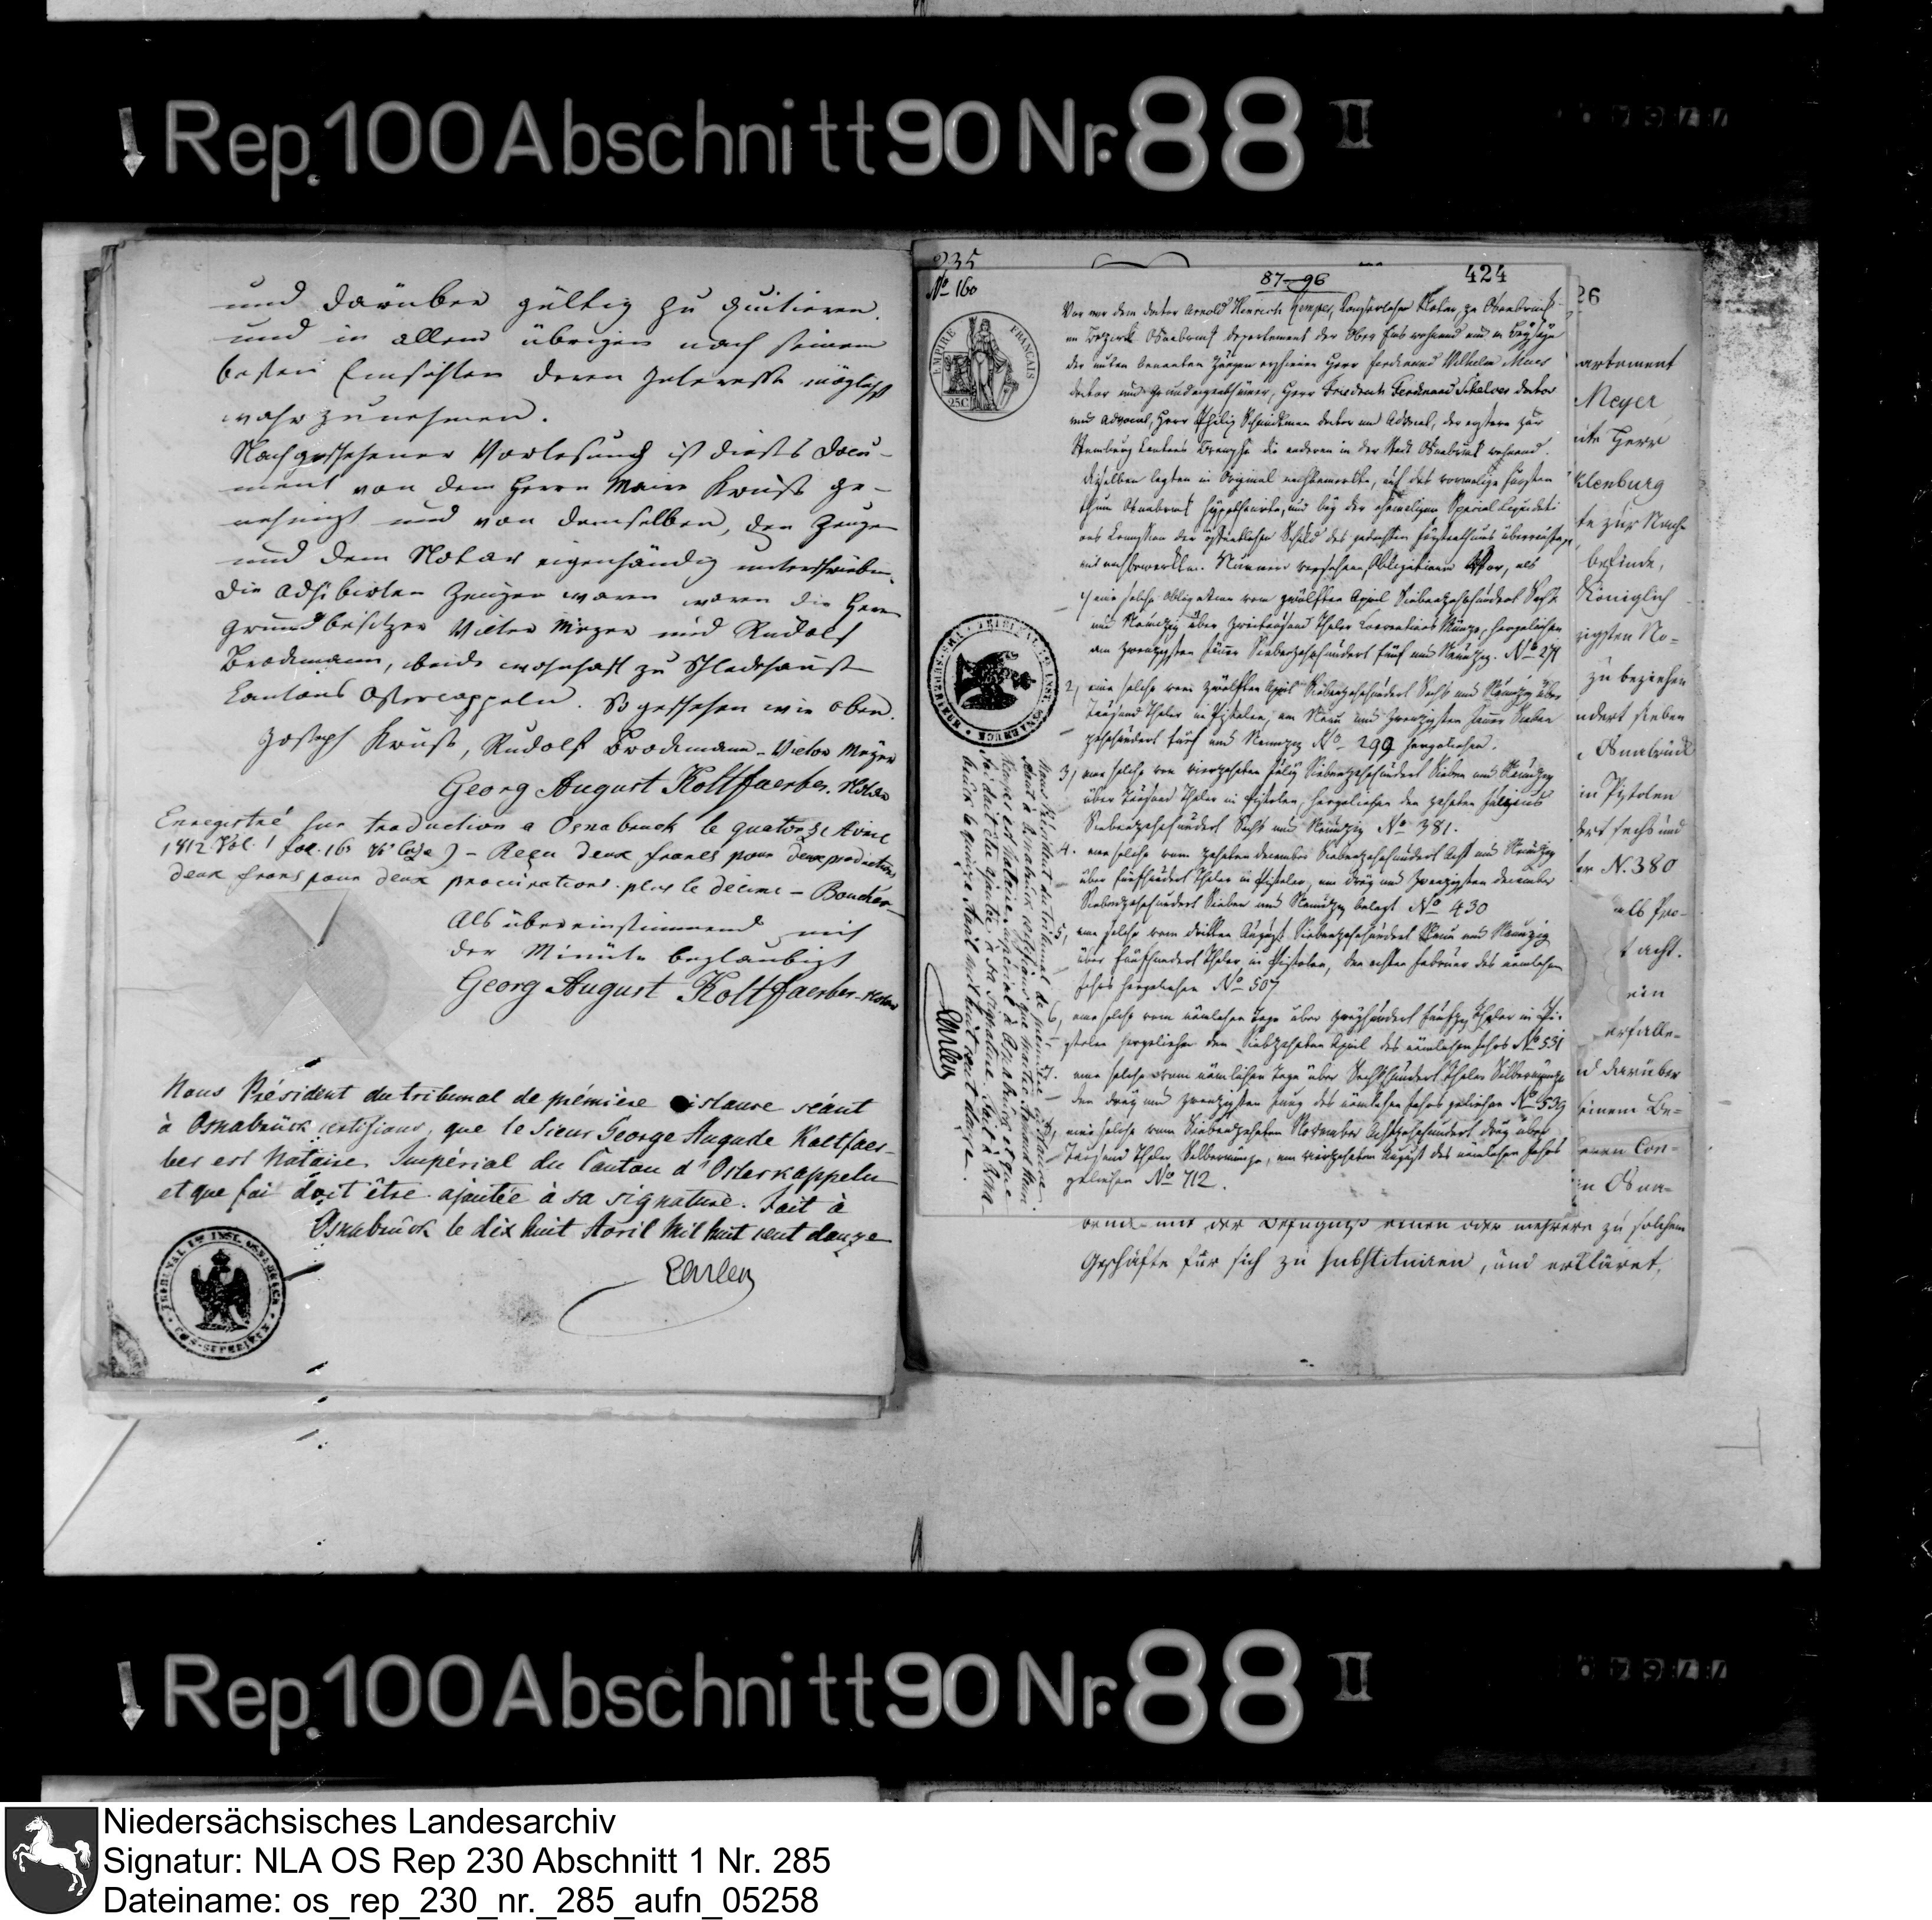 Rep. 100 Abschnitt 90 Nr. 88 II
und darüber gültig zu quitieren,
und in allem übrigen nach seinen
besten Einsichten deren Interesse möglichst
wahrzunehmen.
Nach geschehener Vorlesung ist dieses Docu-
ment von dem Herrn Maire Kruse ge-
nehmigt und von demselben, den Zeugen
und dem Notar eigenhändig unterschrieben.
Die adhibirten Zeugen waren waren die Herrn
Grundbesitzer Victor Meyer und Rudolf
Brockmann, beide wohnhaft zu Schledehausen
Cantons Ostercappeln. So geschehen wie oben.
Joseph Kruse, Rudolf Brockmann - Victor Meyer
Georg August Koltfaerber. Notar
Enregistré sur traduction a Osnabruck le quatorze Avril
1812 Vol. 1 fol. 160 - Reçu deux francs pour deux productions
deux francs pour deux procurations. plus le décime - Boucher
Als übereinstimmend mit
der Minute beglaubigt
Georg August Koltfaerber. Notar
Nous Président du tribunal de prémière instance séant
à Osnabrück certifions, que le Sieur George Auguste Koltfaer-
ber est Notaire Impérial du Canton d'Osterkappeln
et que foi doit être ajoutée à sa signature. Fait à
Osnabrück le dix huit Avril mil huit cent douze
235
No 160
87-96
424
EMPIRE FRANÇAIS
25C
War vor dem doctor Arnold Heinrich Kemper, Kayserlicher Notar, zu Osnabrück
im Bezirck Osnabrück departement der Ober Ems wohnend und in Beyseyn
der unten benanten Zeugen erschienen Herr Ferdinand Wilhelm
doctor und Grundeigenthümer, Herr Friedrich Ferdinand doctor
und Advocat, Herr Philip doctor und Advocat, der erstere zur
die anderen in der Stadt Osnabrück wohnend.
Dieselben legten in Original nachbemerkte, auf das vormalige Fürsten
thum Osnabrück hypothecirte, und bey der ehemaligen Special Liquidati
ons Comission der öffentlichen Schuld des gedachten Fürstenthums
mit nachbemerkten Nummern versehene Obligationen vor, als
1) eine solche Obligation vom zwölften April Siebenzehnhundert Sechs
und Neunzig über zweitausend Thaler Münze, hergeliehen
am zwanzigsten Jänner Siebenzehnhundert fünf und Neunzig. No 271
2) eine solche vom zwölften April Siebenzehnhundert Sechs und Neunzig über
Tausend Thaler in Pistolen, am Neun und zwanzigsten Jänner Sieben
zehnhundert fünf und Neunzig No 299 hergeliehen.
3) eine solche von vierzehnten July Siebenzehnhundert Sieben und Neunzig
über Tausend Thaler in Pistolen, hergeliehen den zehnten
Siebenzehnhundert Sechs und Neunzig No 381.
4. eine solche vom zehnten december Siebenzehnhundert Acht und Neunzig
über fünfhundert Thaler in Pistolen, am drey und zwanzigsten december
Siebenzehnhundert Sieben und Neunzig belegt No 430
5, eine solche vom dritten August Siebenzehnhundert Neun und Neunzig
über fünfhundert Thaler in Pistolen, den ersten Februar des nämlichen
Jahrs hergeliehen No 507
6, eine solche vom nämlichen Tage über zweyhundert fünfzig Thaler in Pi-
stolen hergeliehen den Siebzehnten April des nämlichen Jahrs No 531
7. eine solche vom nämlichen Tage über Sechshundert Thaler Silbermünze
den drey und zwanzigsten Juny des nämlichen Jahrs geliehen No 539
8, eine solche vom Siebenzehnten November Achtzehnhundert drey über
Tausend Thaler Silbermünze, am vierzehnten August des nämlichen Jahrs
geliehen No 712.
Nous Président du tribunal de première instance
séant à Osnabrück certifions que maître Arnaud Henri
Kemper est Notaire impérial à Osnabrück et que
foi doit être ajoutée à sa signature. Fait à Osna
brück le quinze Avril mil huit cent douze.
26
artement
Meyer
Herr
klenburg
te zur Nach-
befinde,
Königlich
zigsten No-
zu beziehen
ndert sieben
Osnabrück
in Pistolen
dert sechs und
er N. 380
als Pro-
t acht.
ein
erfalle-
nd darüber
einem Be-
eren Con-
in Osna-
mit der Befugniß einen oder mehrere zu solchem
Geschäfte für sich zu substituiren, und erkläret,
Rep. 100 Abschnitt 90 Nr. 88 II
Niedersächsisches Landesarchiv
Signatur: NLA OS Rep 230 Abschnitt 1 Nr. 285
Dateiname: os_rep_230_nr._285_aufn_05258